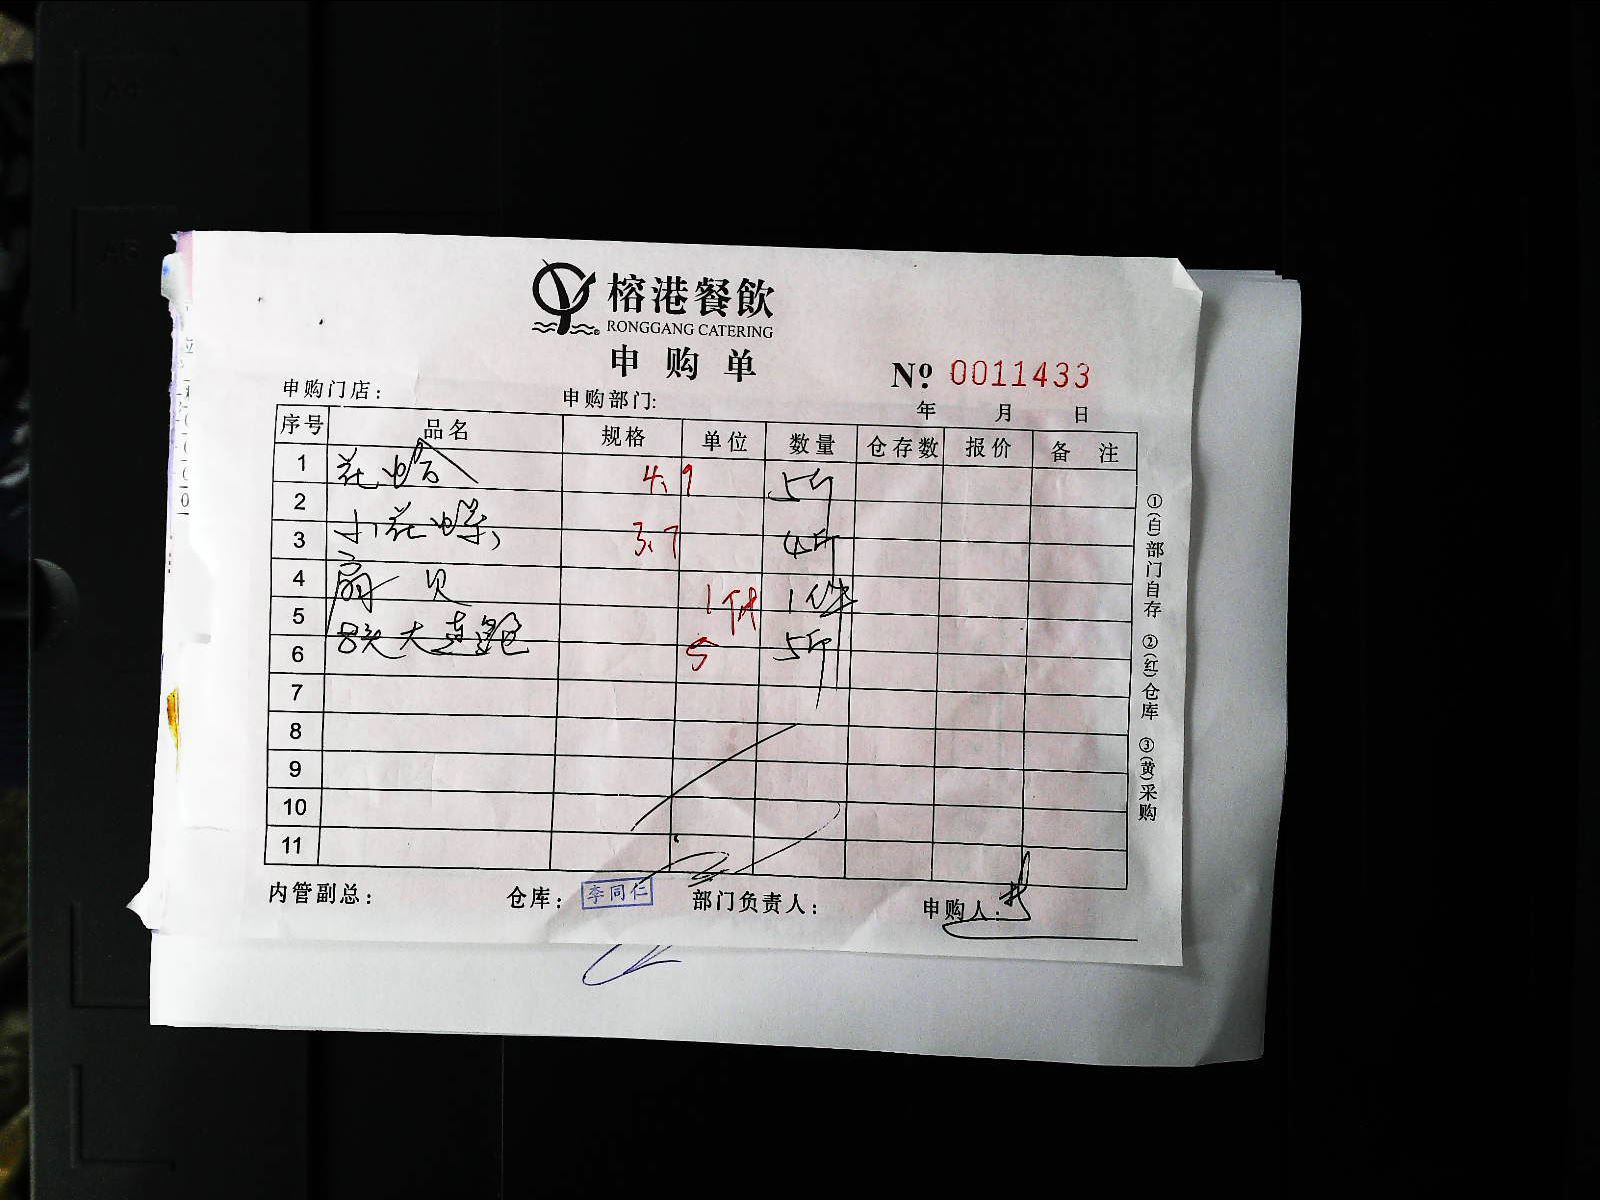 榕港餐飲
RONGGANG CATERING
申购单
№ 0011433
申购门店: 申购部门: 年 月 日
序号 品名 规格 单位 数量 仓存数 报价 备注
1 花蛤 4.9 5斤
2
3 小花螺 3.7 4斤
4 扇贝 1件 1件
5
6 8头大连鲍 5 5斤
7
8
9
10
11
①(白)部门自存 ②(红)仓库 ③(黄)采购
内管副总: 仓库: 李同仁 部门负责人: 申购人: